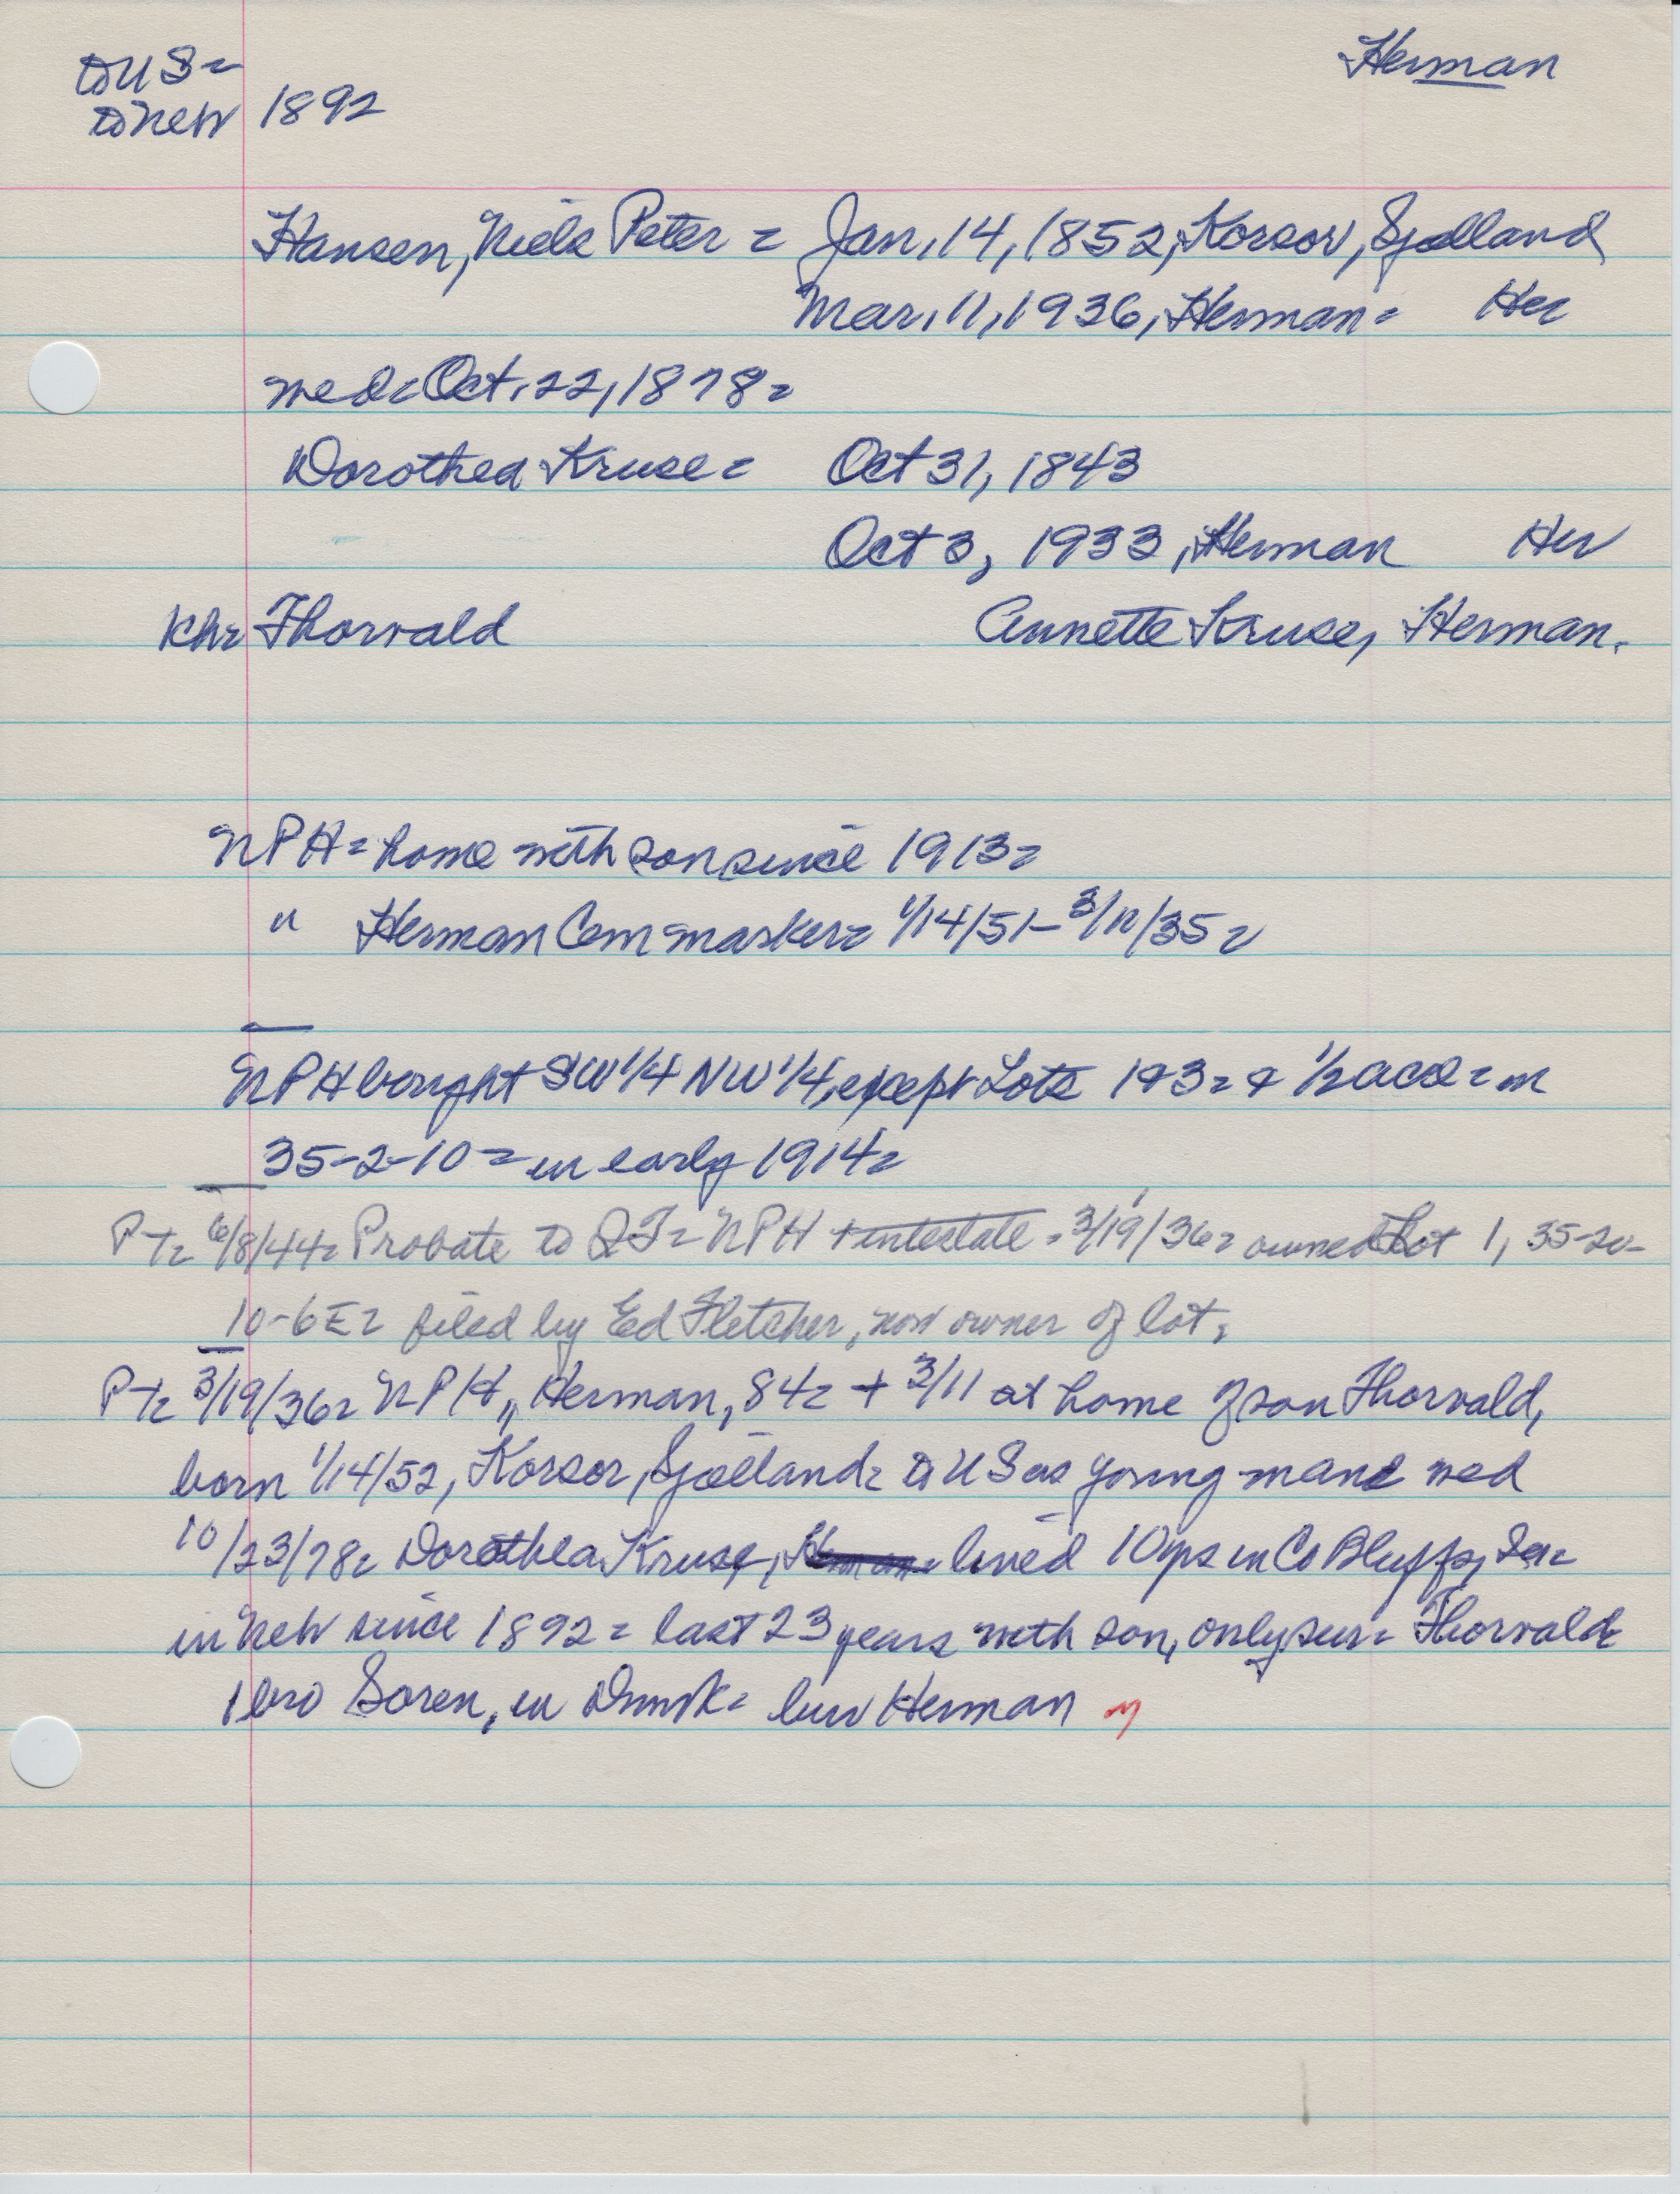 Herman
to US =
to Neb 1892
Hansen, Niels Peter = Jan, 14, 1852, Korsor, Sjælland
Mar, 11, 1936, Herman = Her
wed = Oct. 22, 1878 =
Dorothea Kruse = Oct 31, 1843
Oct 3, 1933, Herman Her
Khr Thorvald Annette Kruse, Herman.
NPH = home with son since 1913 =
" Herman Cem marker = 1/14/51 - 3/11/35 =
NPH bought SW 1/4 NW 1/4, except Lots 1 + 3 = + 1/2 acre = in
35-2-10 = in early 1914 =
P-t = 6/8/44 = Probate to QT = NPH + intestate = 3/19/36 = owned Lot 1, 35-20-
10-6E = filed by Ed Fletcher, now owner of lot,
P-t = 3/19/36 = NPH,, Herman, 84 = + 3/11 at home of son Thorvald,
born 1/14/52, Korsor, Sjælland = to US as young man = wed
10/23/78 = Dorothea Kruse, Herman = lived 10 yrs in Co Bluffs, Ia =
in Neb since 1892 = last 23 years with son, only sur = Thorvald =
1 bro Soren, in Dnmk = bur Herman